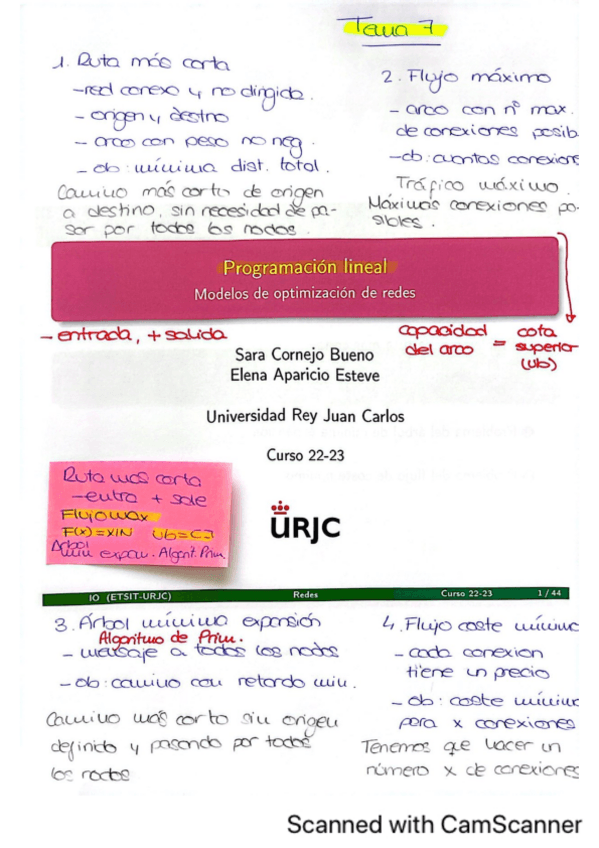 Tema 7
1. Ruta más corta
- red conexa y no dirigida.
- origen y destino
- arco con peso no neg.
- ob: mínima dist. total.
Camino más corto de origen
a destino, sin necesidad de pa-
sar por todos los nodos.
2. Flujo máximo
- arco con nº max.
de conexiones posib
- ob: cuantas conexion
Tráfico máximo.
Máximas conexiones po-
sibles.
Programación lineal
Modelos de optimización de redes
- entrada, + salida
capacidad del arco = cota superior (ub)
Sara Cornejo Bueno
Elena Aparicio Esteve
Universidad Rey Juan Carlos
Curso 22-23
Ruta mas corta
- entra + sale
Flujo max
F(x)=XIN ub=CJ
Arbol
min expan. Algorit. Prim
URJC
IO (ETSIT-URJC) Redes Curso 22-23 1 / 44
3. Árbol mínima expansión
Algoritmo de Prim.
- mensaje a todos los nodos
- ob: camino con retardo min.
Camino mas corto sin origen
definido y pasando por todos
los nodos
4. Flujo coste mínimo
- cada conexion
tiene un precio
- ob: coste mínimo
para x conexiones
Tenemos que hacer un
número x de conexiones
Scanned with CamScanner